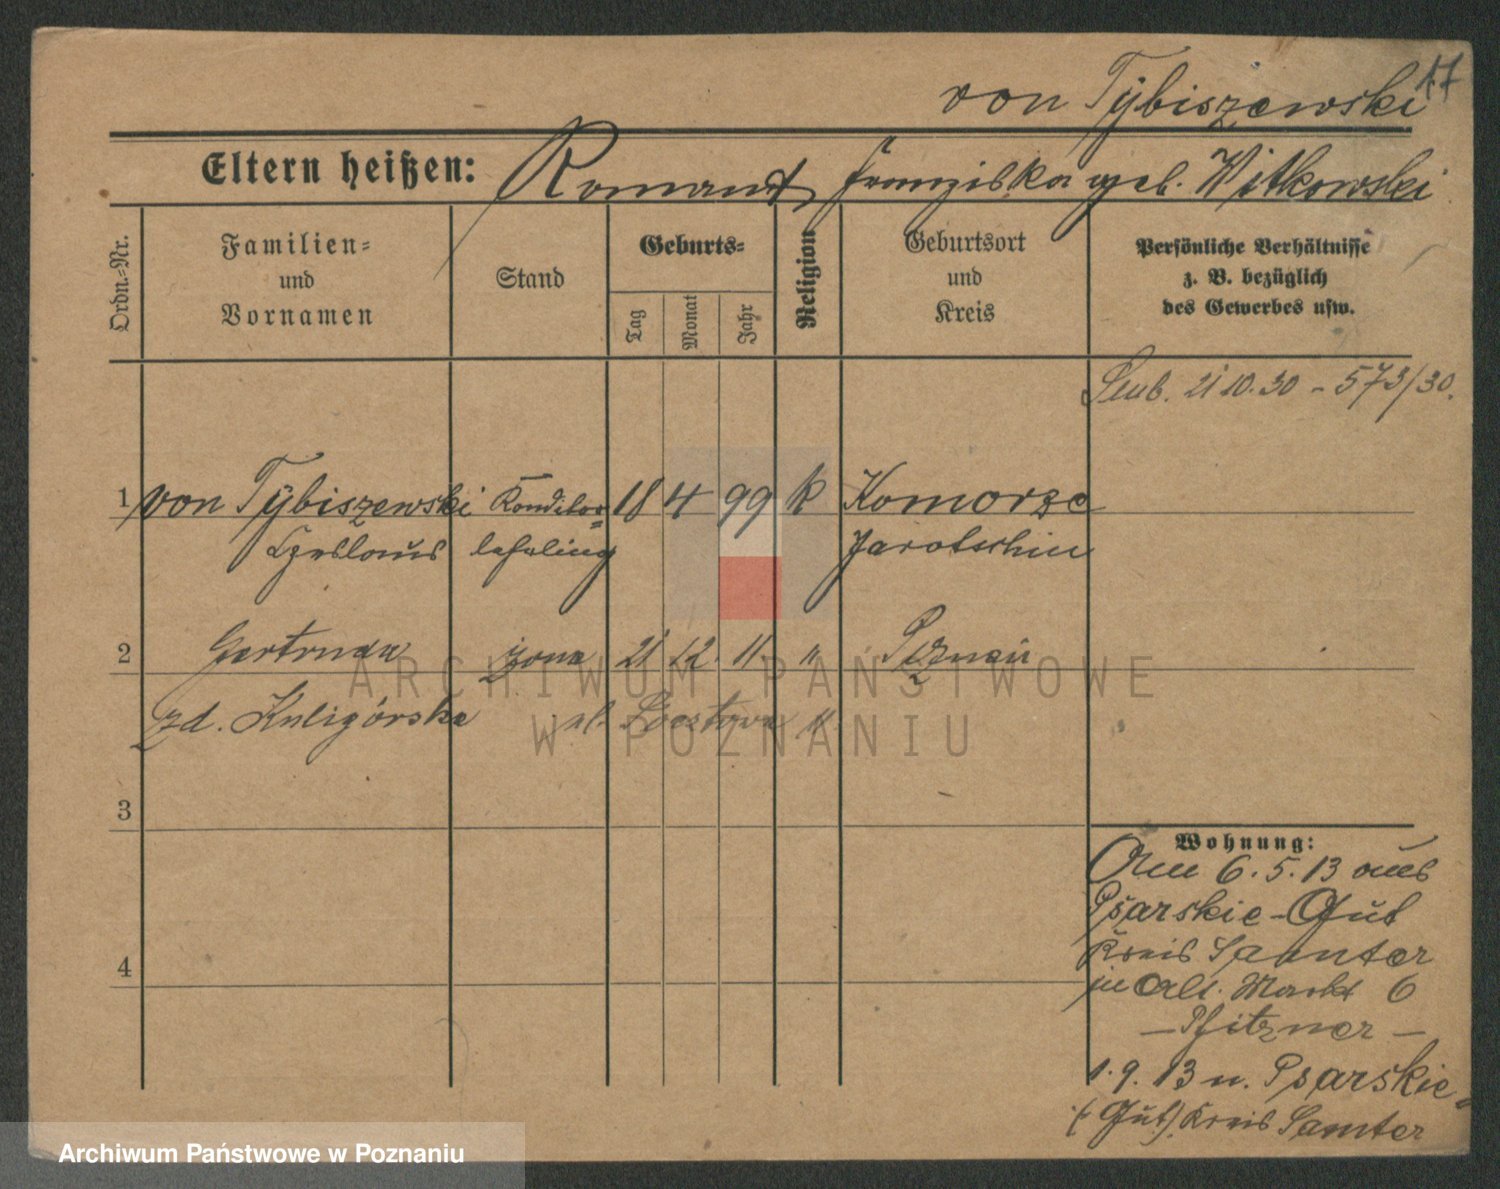 17
von Tÿbiszewski
Eltern heißen: Roman u Franziska geb. Witkowski
Ordn.-Nr.
Familien-
und
Vornamen
Stand
Geburts-
Tag
Monat
Jahr
Religion
Geburtsort
und
Kreis
Persönliche Verhältnisse
z. B. bezüglich
des Gewerbes usw.
Ślub. 21 10.30 - 573/30.
1 von Tÿbiszewski Konditor= 18 4 99 k Komorze
Czeslaus lehrling Jarotschin
2 Gertruda żona 21 12. 11. " Poznań
zd. Kuligórska
3
4
Wohnung:
Am 6.5.13 aus
Psarskie-Gut
Kreis Samter
in Alt. Markt 6
- Pfitzner -
1.9.13 n. Psarskie=
(Gut) Kreis Samter
ARCHIWUM PAŃSTWOWE
W POZNANIU
Archiwum Państwowe w Poznaniu